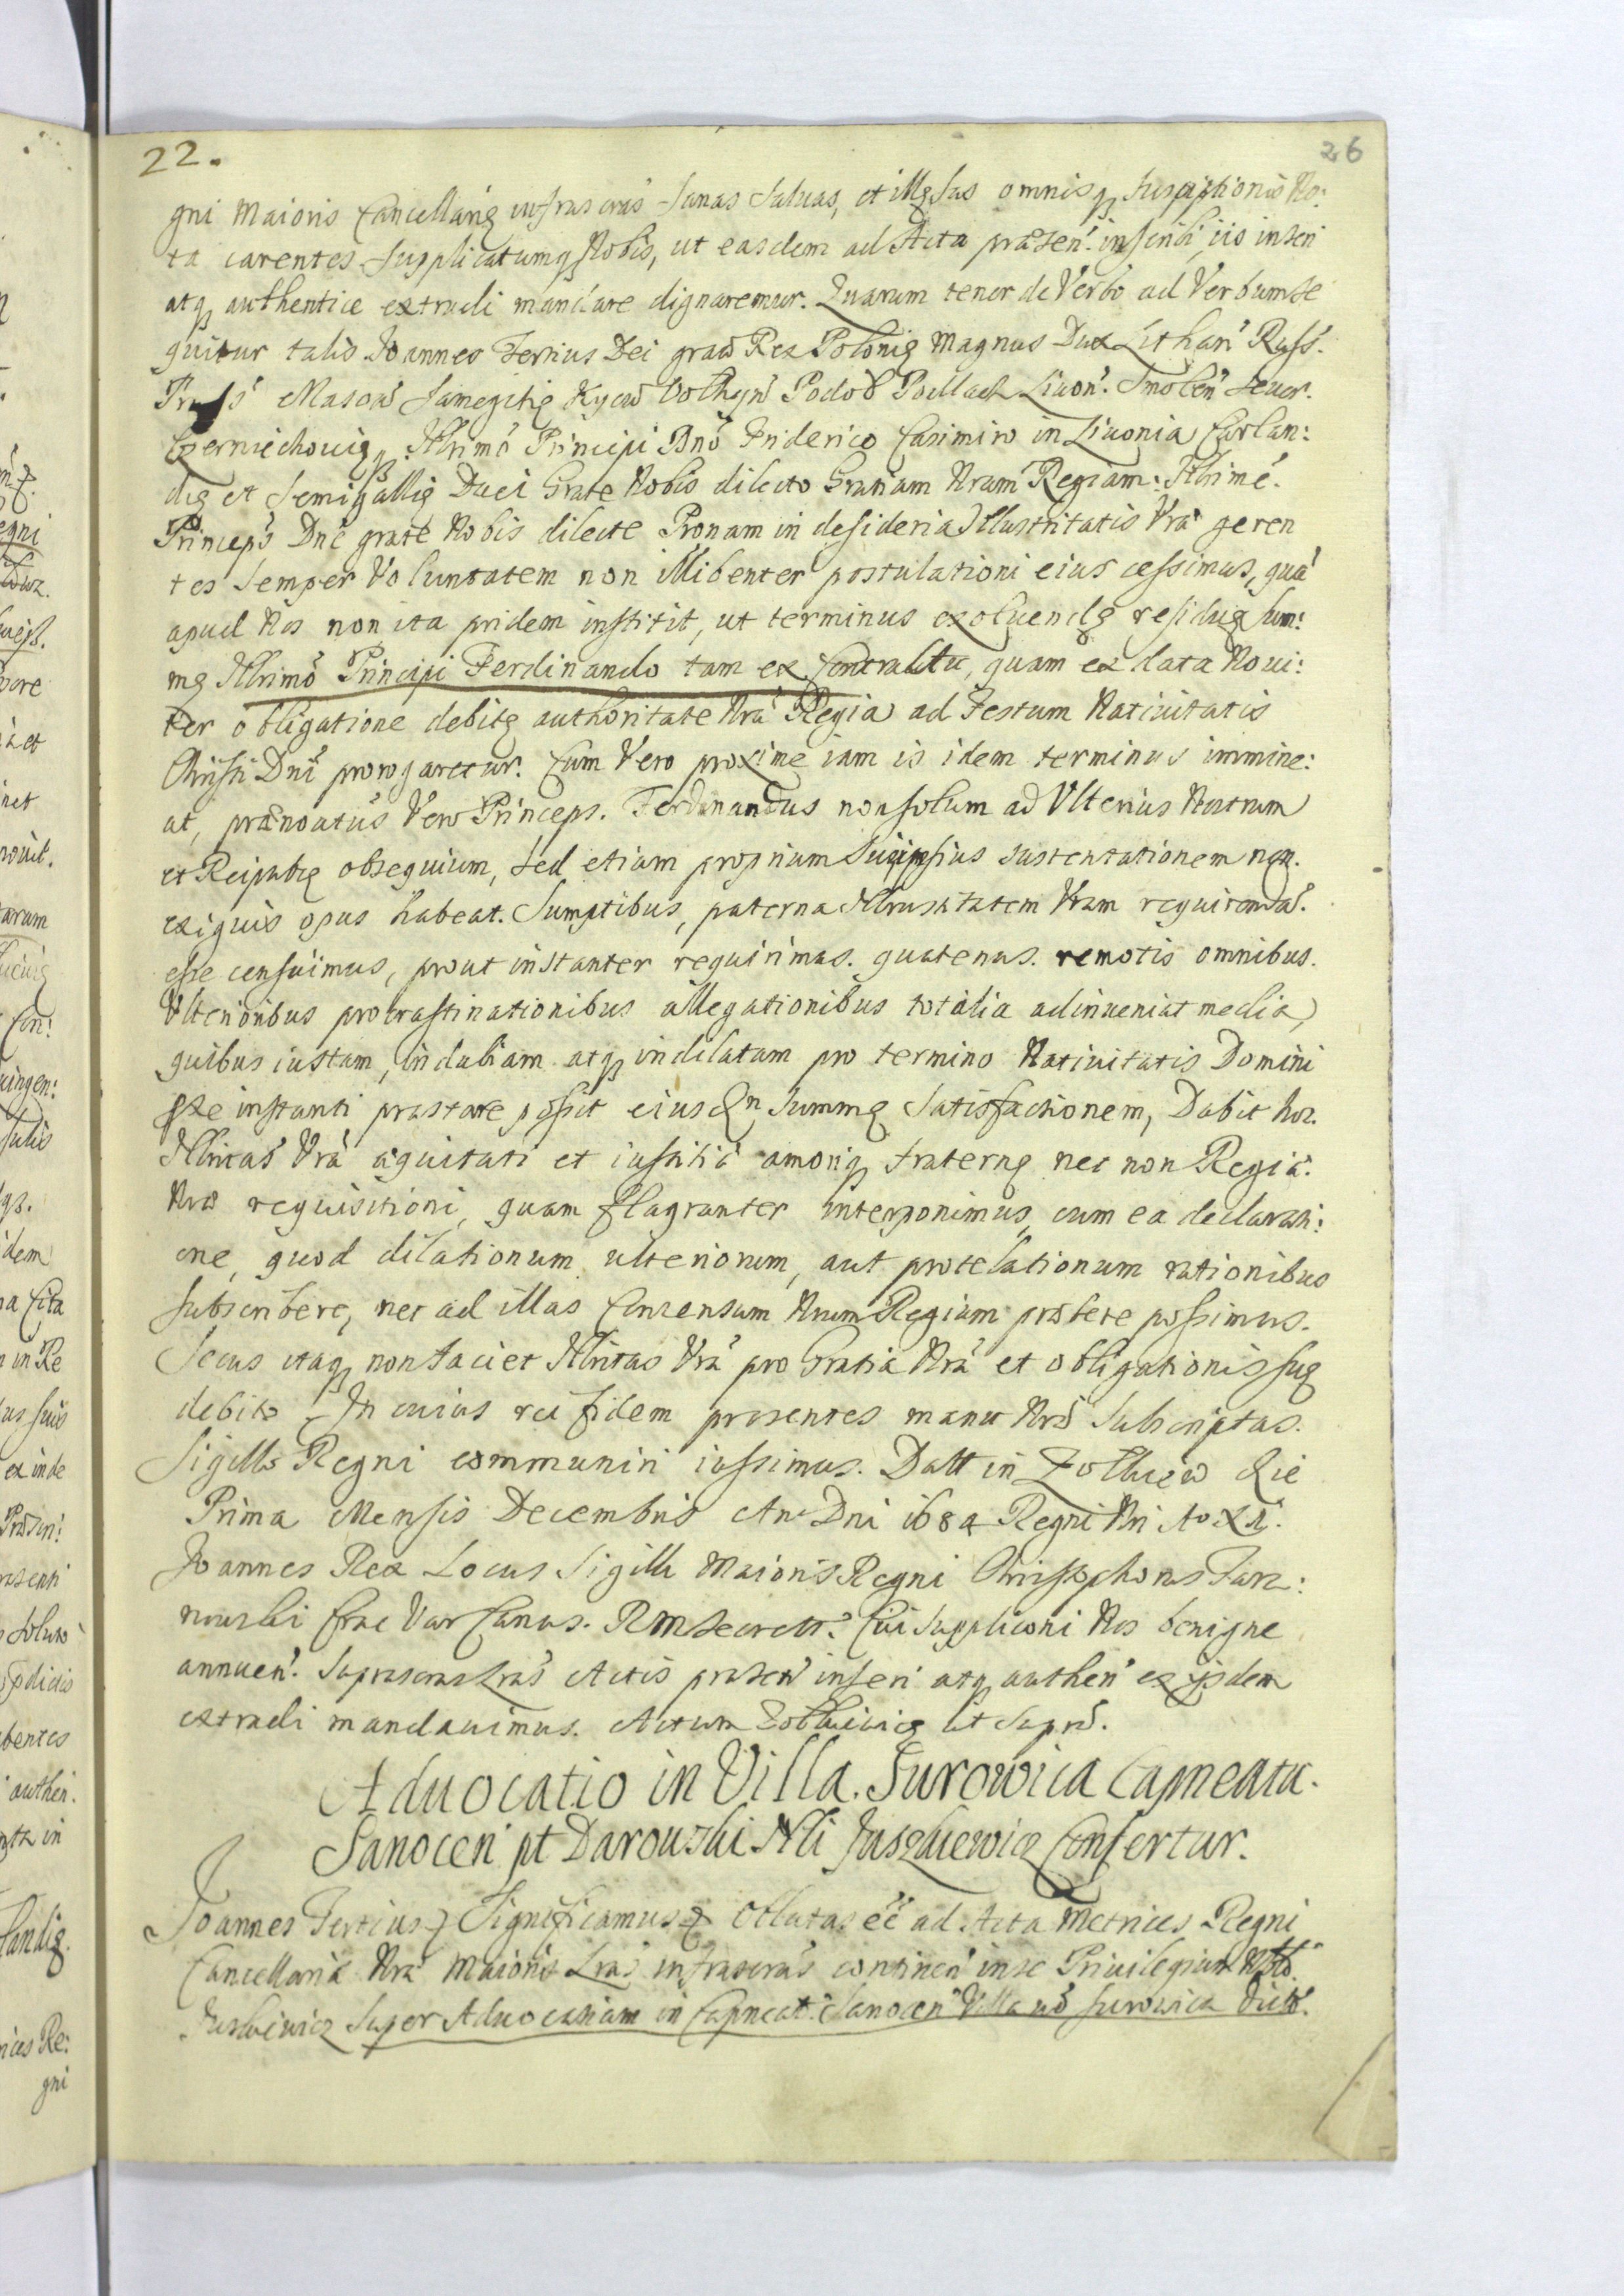 22.
26
gni Maioris Cancellariæ infrascras Sanas Saluas, et illæsas omnisq Suspitionis No:
ta carentes. Supplicatumq Nobis, ut easdem ad Acta præsen: inscribi, iis inseri
atq authentice extradi mandare dignaremur. Quarum tenor de Verbo ad Verbum se
quitur talis Joannes Tertius Dei graa Rex Poloniæ Magnus Dux Lithan Russ.
Pruss Masow Samogitiæ Kyow Volhyn Podol Podlach Liuon: Smolen Seuer.
Czerniechouiæq. Illrimo Principi Dno Friderico Casimiro in Liuonia Curlan:
diæ et Semigalliæ Duci Grate Nobis dilecto Gratiam Nram Regiam. Illrime.
Princeps Dne grate Nobis dilecte Pronam in desideria Illustritatis Vra geren
tes Semper Voluntatem non illibenter postulationi eius cessimus, qua
apud Nos non ita pridem institit, ut terminus exoluendæ residuæ Sum:
mæ Illrimo Principi Ferdinando tam ex Contractu, quam ex data Noui:
ter obligatione debitæ authoritate Nra Regia ad Festum Natiuitatis
Christi Dni prorogaretur. Cum Vero proxime iam is idem terminus immine:
at, prænoatus Vero Princeps. Ferdinandus non solum ad Vlterius Nostrum
et Reipubcæ obsequium, sed etiam proprium Suiipsius sustentationem non.
exiguis opus habeat. Sumptibus, paterne Illrusstatem Vram requirendā.
esse censuimus, prout instanter requirimus. quatenus. remotis omnibus.
Vlterioribus procrastinationibus allegationibus totalia adinueniat media,
quibus iustam, indubiam atq indilatam pro termino Natiuitatis Domini
pxe instanti præstare possit eiusdm Summæ Satisfactionem, Dabit hoc.
Illritas Vra æquitati et iustitiæ amoriq fraternæ nec non Regiæ.
Nræ requisitioni, quam flagranter interponimus, cum ea declarati:
one, quod dilationum ulteriorum, aut protelationum rationibus
subscribere, nec ad illas Consensum Nrum Regium præbere possimus.
Secus itaq non faciet Illritas Vra pro Gratia Nra et obligationis suæ
debito. In cuius rei fidem præsentes manu Nra Subscriptas.
Sigillo Regni communiri iussimus. Datt in Zolkiew Die
Prima Mensis Decembris Ano Dni 1684 Regni Nri Ao XI.
Joannes Rex Locus Sigilli Maioris Regni Christophorus Tarz:
nowski Crac Var Canus. RM Secrett. Cui Supplicōni Nos benigne
annuen. Suprascras Lras Actis præsen inseri atq authen ex ijsdem
extradi mandauimus. Actum Zolkieuiæ ut Supra.
Aduocatio in Villa. Surowica Capneatu.
Sanocen pt Darowski Nli Juszkiewicz Confertur.
Joannes Tertius Significamus Oblatas ēe ad Acta Metrices Regni
Cancellariæ Nræ Maioris Lras infrascras continen in se Priuilegium Nblo.
Juszkiewicz Super Aduocatiam in Capneat. Sanocen Villa Surowica Dict.